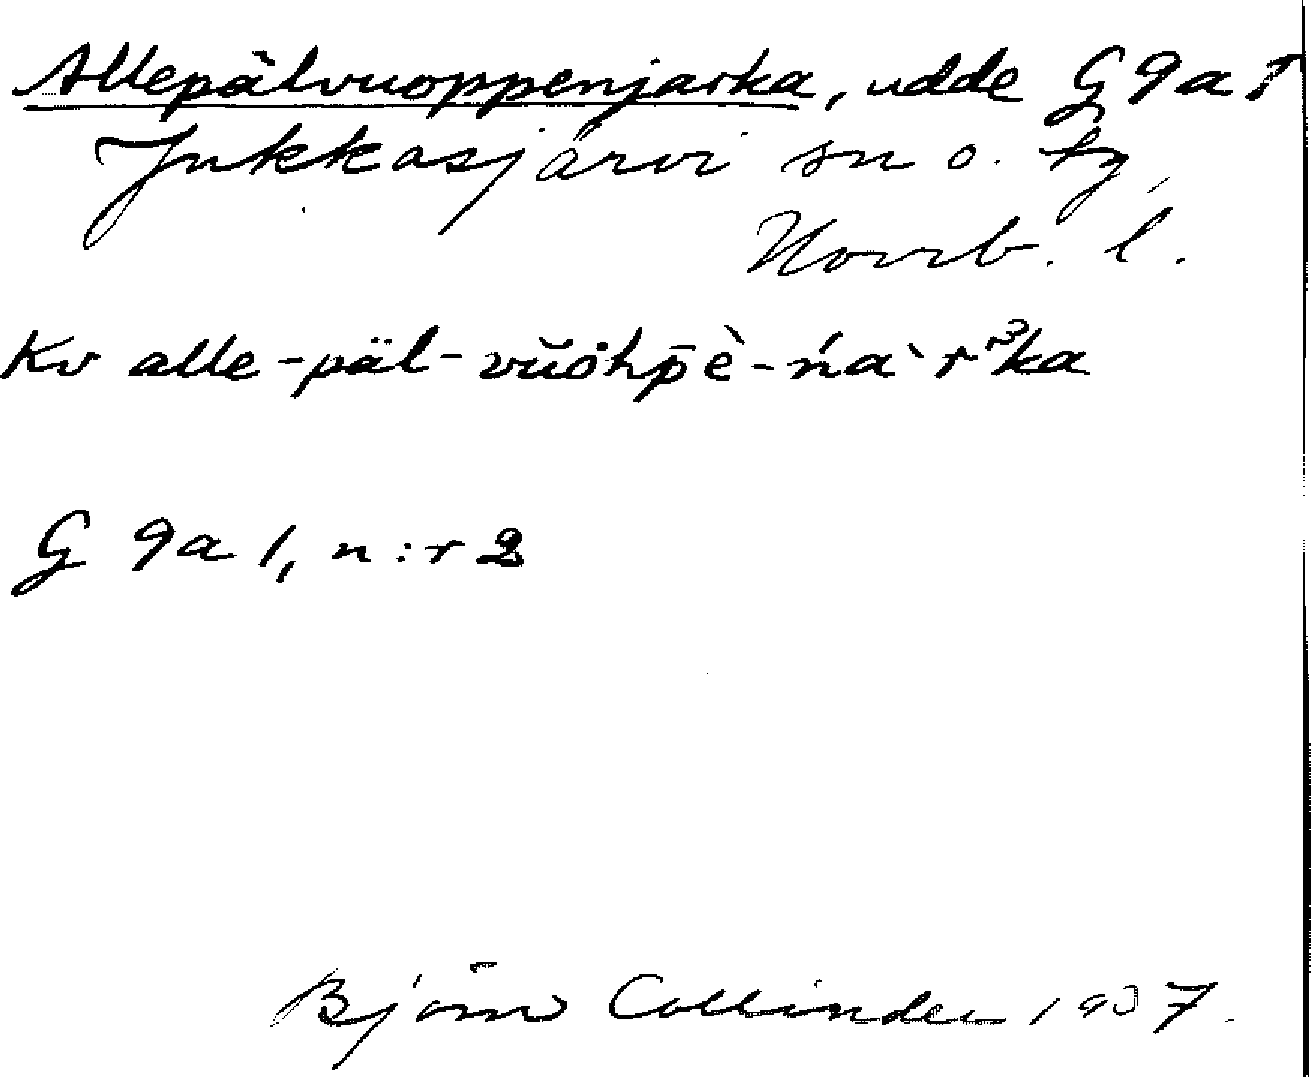 Allepälvuoppenjarka, udde G 9 a 1
Jukkasjärvi sn o. tg,
Norrb. l.
Kv alle-päl-vŭȯhp̄è-ńàr³ka
G 9a 1, n:r 2
Björn Collinder 1937.